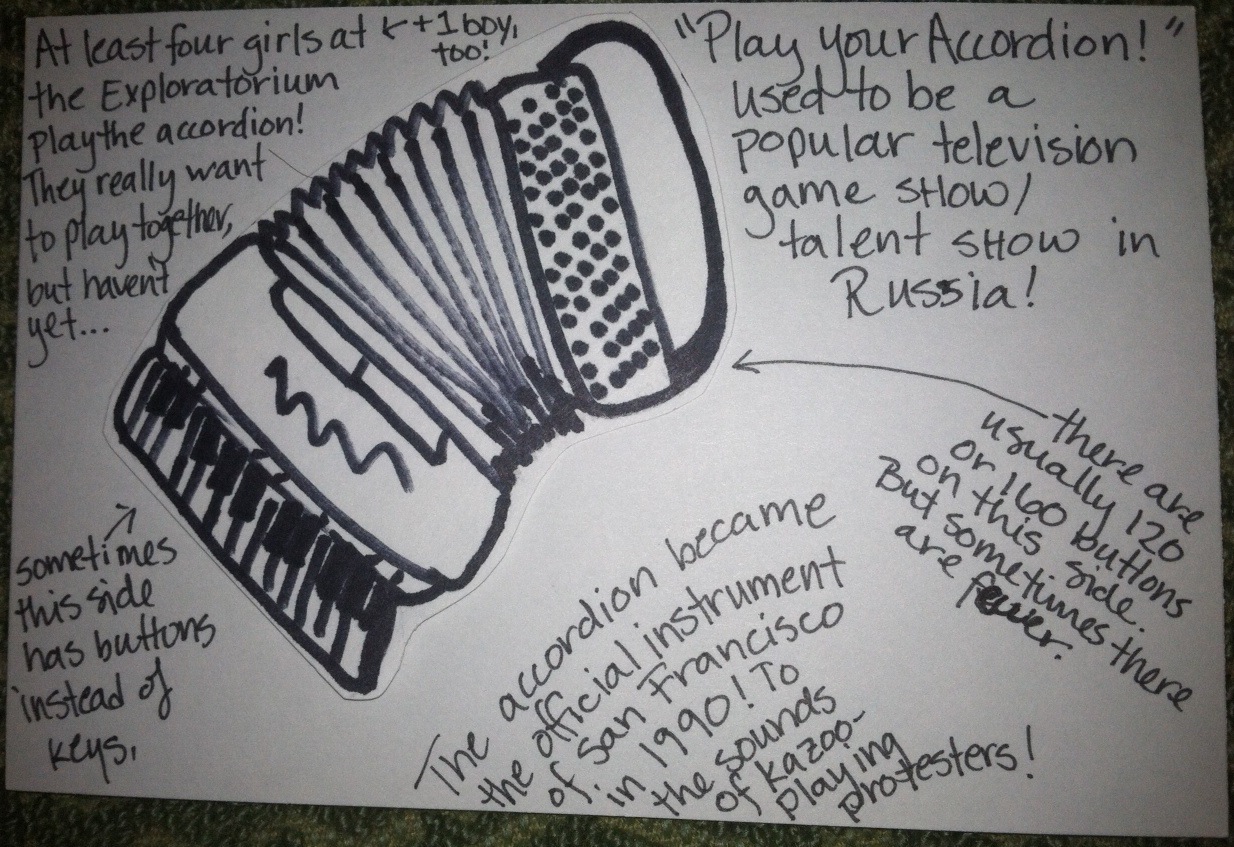 At least four girls at
the Exploratorium
play the accordion!
They really want
to play together,
but haven't
yet...
+1 boy,
too!
"Play your Accordion!"
used to be a
popular television
game show/
talent show in
Russia!
there are
usually 120
or 160 buttons
on this side.
But sometimes there
are fewer.
sometimes
this side
has buttons
instead of
keys.
The accordion became
the official instrument
of San Francisco
in 1990! To
the sounds
of kazoo-
playing
protesters!